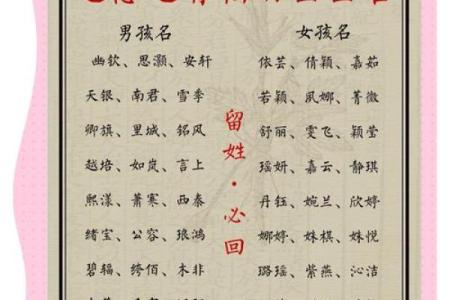 男孩名
幽钦、思灏、安轩
天银、南君、雪季
卿旗、里城、铭风
越培、如岚、言上
熙漾、萧寒、西秦
绪宝、公容、琅鸿
碧辐、绔佰、木非
留姓·必回
女孩名
依芸、倩颖、嘉茹
若颖、夙娜、菁微
舒丽、雯飞、颖莹
瑶妍、嘉云、静琪
丹钰、婉兰、欣婷
娜婷、姝棋、姝悦
璐瑶、紫燕、沁洁